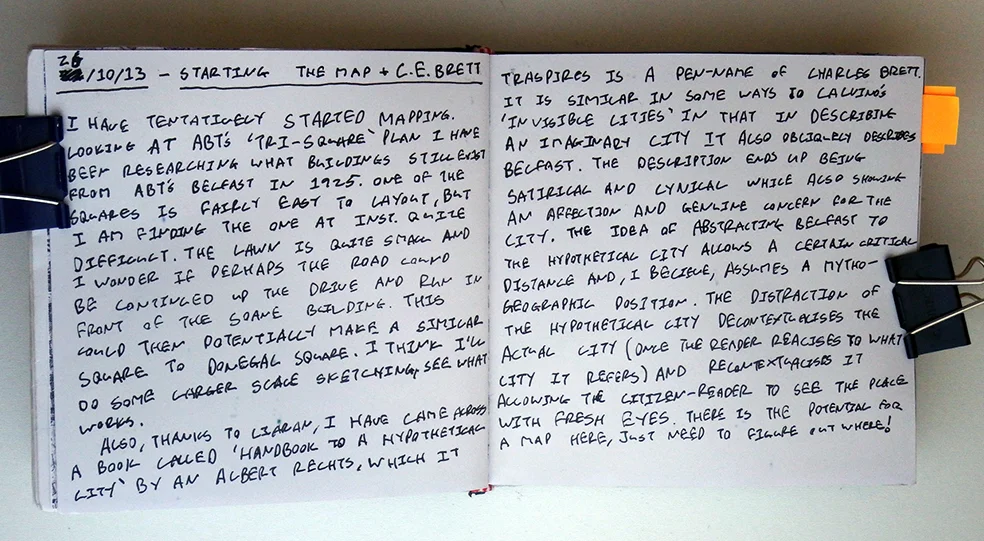 26/10/13 - STARTING THE MAP + C.E. BRETT
I HAVE TENTATIVELY STARTED MAPPING.
LOOKING AT ABT'S 'TRI-SQUARE' PLAN I HAVE
BEEN RESEARCHING WHAT BUILDINGS STILL EXIST
FROM ABT'S BELFAST IN 1925. ONE OF THE
SQUARES IS FAIRLY EASY TO LAYOUT, BUT
I AM FINDING THE ONE AT INST. QUITE
DIFFICULT. THE LAWN IS QUITE SMALL AND
I WONDER IF PERHAPS THE ROAD COULD
BE CONTINUED UP THE DRIVE AND RUN IN
FRONT OF THE SOANE BUILDING. THIS
COULD THEN POTENTIALLY MAKE A SIMILAR
SQUARE TO DONEGAL SQUARE. I THINK I'LL
DO SOME LARGER SCALE SKETCHING, SEE WHAT
WORKS.
ALSO, THANKS TO CIARAN, I HAVE CAME ACROSS
A BOOK CALLED 'HANDBOOK TO A HYPOTHETICAL
CITY' BY AN ALBERT RECHTS, WHICH IT
TRASPIRES IS A PEN-NAME OF CHARLES BRETT.
IT IS SIMILAR IN SOME WAYS TO CALVINO'S
'INVISIBLE CITIES' IN THAT IN DESCRIBING
AN IMAGINARY CITY IT ALSO OBLIQUELY DESCRIBES
BELFAST. THE DESCRIPTION ENDS UP BEING
SATIRICAL AND CYNICAL WHILE ALSO SHOWING
AN AFFECTION AND GENUINE CONCERN FOR THE
CITY. THE IDEA OF ABSTRACTING BELFAST TO
THE HYPOTHETICAL CITY ALLOWS A CERTAIN CRITICAL
DISTANCE AND, I BELIEVE, ASSUMES A MYTHO-
GEOGRAPHIC POSITION. THE DISTRACTION OF
THE HYPOTHETICAL CITY DECONTEXTUALISES THE
ACTUAL CITY (ONCE THE READER REALISES TO WHAT
CITY IT REFERS) AND RECONTEXTUALISES IT
ALLOWING THE CITIZEN-READER TO SEE THE PLACE
WITH FRESH EYES. THERE IS THE POTENTIAL FOR
A MAP HERE, JUST NEED TO FIGURE OUT WHERE!